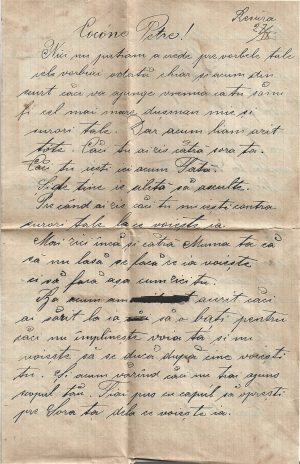 Renira
27/IX
Cucone Petre!
Nici nu puteam a vede prevorbele tale
cele vorbiai odată chiar și acum din
surt căci va ajunge vremea ca tu să-m
fi cel mai mare dușman mie și
surori tale. Dar acum liam arăt
tote. Căci tu ai zis cătră sora ta.
Căci tu iești eu acum Tata.
Și de tine se elită să asculte.
Precănd ai zis căci tu nu iesti contra
surori tale la ce voiește ia.
Mai zis încă și cătră Muma ta că
să nu lasă se facă ce ia voiește
ci să facă așa cum zic tu.
Ba acum am aurit căci
ai sărit la ia să o bați pentru
căci nu împlinește voia ta și nu
voiește să se ducă după cine voiești
tu. Și acum vărînd căci nu trai ajuns
scopul tău. Tiai pus cu capul să oprești
pre Sora ta dela ce voiește ia.